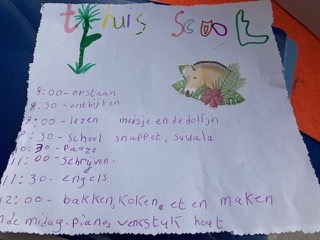 thuis School
8:00-opstaan
8:30-ontbijten
9:00-lezen meisje en de dolfijn
9:30-School snappet, squla
10:30-Pauze
11:00-Schrijven.
11:30-engels
12:00-bakken, koken, eten maken
de midag-piano, verkstyk hout